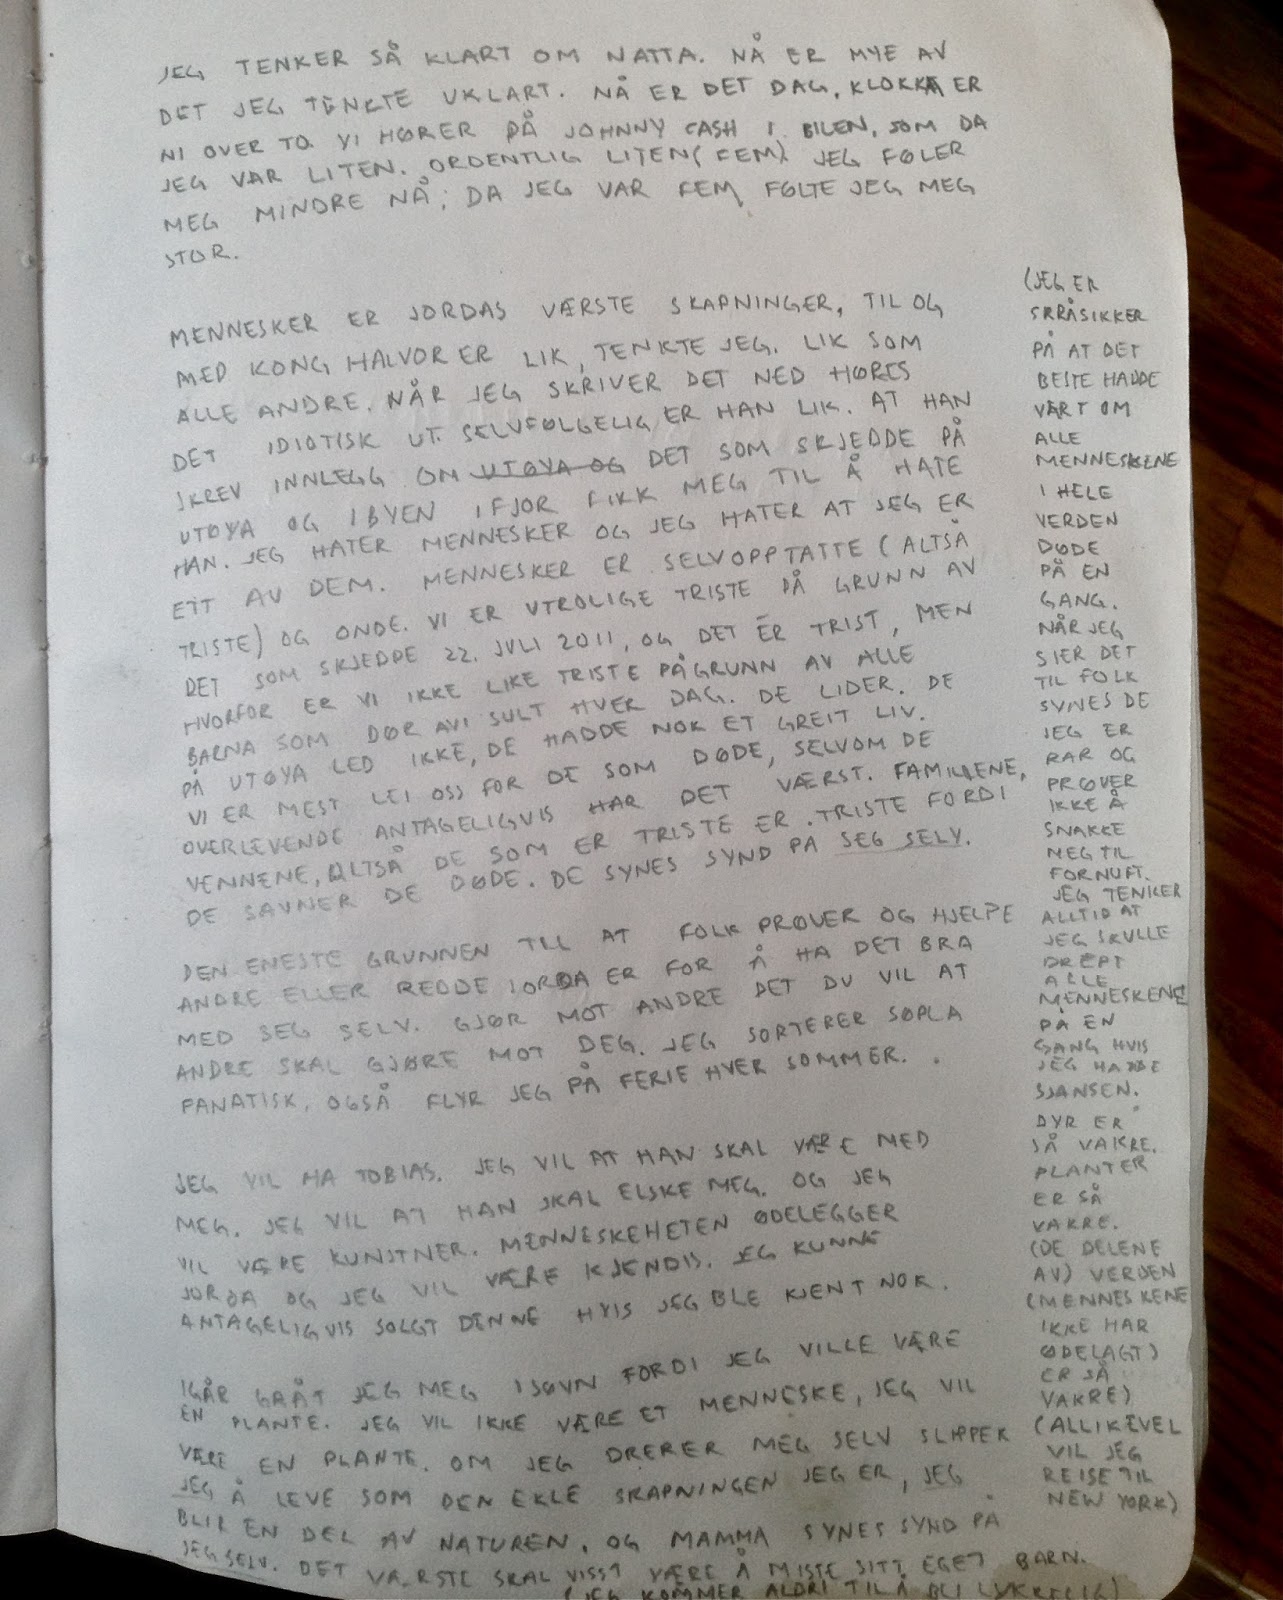 JEG TENKER SÅ KLART OM NATTA. NÅ ER MYE AV
DET JEG TENKTE UKLART. NÅ ER DET DAG, KLOKKA ER
NI OVER TO. VI HØRER PÅ JOHNNY CASH I BILEN, SOM DA
JEG VAR LITEN. ORDENTLIG LITEN (FEM). JEG FØLER
MEG MINDRE NÅ; DA JEG VAR FEM, FØLTE JEG MEG
STOR.
MENNESKER ER JORDAS VÆRSTE SKAPNINGER, TIL OG
MED KONG HALVOR ER LIK, TENKTE JEG. LIK SOM
ALLE ANDRE. NÅR JEG SKRIVER DET NED HØRES
DET IDIOTISK UT. SELVFØLGELIG ER HAN LIK. AT HAN
SKREV INNLEGG OM UTØYA OG DET SOM SKJEDDE PÅ
UTØYA OG I BYEN I FJOR FIKK MEG TIL Å HATE
HAN. JEG HATER MENNESKER OG JEG HATER AT JEG ER
ETT AV DEM. MENNESKER ER SELVOPPTATTE (ALTSÅ
TRISTE) OG ONDE. VI ER UTROLIGE TRISTE PÅ GRUNN AV
DET SOM SKJEDDE 22. JULI 2011, OG DET ER TRIST, MEN
HVORFOR ER VI IKKE LIKE TRISTE PÅGRUNN AV ALLE
BARNA SOM DØR AVI SULT HVER DAG. DE LIDER. DE
PÅ UTØYA LED IKKE, DE HADDE NOK ET GREIT LIV.
VI ER MEST LEI OSS FOR DE SOM DØDE, SELVOM DE
OVERLEVENDE ANTAGELIGVIS HAR DET VÆRST. FAMILIENE,
VENNENE, ALTSÅ DE SOM ER TRISTE ER TRISTE FORDI
DE SAVNER DE DØDE. DE SYNES SYND PÅ SEG SELV.
DEN ENESTE GRUNNEN TIL AT FOLK PRØVER OG HJELPE
ANDRE ELLER REDDE JORDA ER FOR Å HA DET BRA
MED SEG SELV. GJØR MOT ANDRE DET DU VIL AT
ANDRE SKAL GJØRE MOT DEG. JEG SORTERER SØPLA
FANATISK, OGSÅ FLYR JEG PÅ FERIE HVER SOMMER.
JEG VIL HA TOBIAS. JEG VIL AT HAN SKAL VÆRE MED
MEG. JEG VIL AT HAN SKAL ELSKE MEG. OG JEG
VIL VÆRE KUNSTNER. MENNESKEHETEN ØDELEGGER
JORDA OG JEG VIL VÆRE KJENDIS. JEG KUNNE
ANTAGELIGVIS SOLGT DENNE HVIS JEG BLE KJENT NOK.
IGÅR GRÅT JEG MEG I SØVN FORDI JEG VILLE VÆRE
EN PLANTE. JEG VIL IKKE VÆRE ET MENNESKE, JEG VIL
VÆRE EN PLANTE. OM JEG DREPER MEG SELV SLIPPER
JEG Å LEVE SOM DEN EKLE SKAPNINGEN JEG ER, JEG
BLIR EN DEL AV NATUREN, OG MAMMA SYNES SYND PÅ
SEG SELV. DET VÆRSTE SKAL VISST VÆRE Å MISTE SITT EGET BARN.
(JEG KOMMER ALDRI TIL Å BLI LYKKELIG)
(JEG ER
SKRÅSIKKER
PÅ AT DET
BESTE HADDE
VÆRT OM
ALLE
MENNESKENE
I HELE
VERDEN
DØDE
PÅ EN
GANG.
NÅR JEG
SIER DET
TIL FOLK
SYNES DE
JEG ER
RAR OG
PRØVER
IKKE Å
SNAKKE
MEG TIL
FORNUFT.
JEG TENKER
ALLTID AT
JEG SKULLE
DREPT
ALLE
MENNESKENE
PÅ EN
GANG HVIS
JEG HADDE
SJANSEN.
DYR ER
SÅ VAKRE.
PLANTER
ER SÅ
VAKRE.
(DE DELENE
AV) VERDEN
(MENNESKENE
IKKE HAR
ØDELAGT)
ER SÅ
VAKRE)
(ALLIKEVEL
VIL JEG
REISE TIL
NEW YORK)